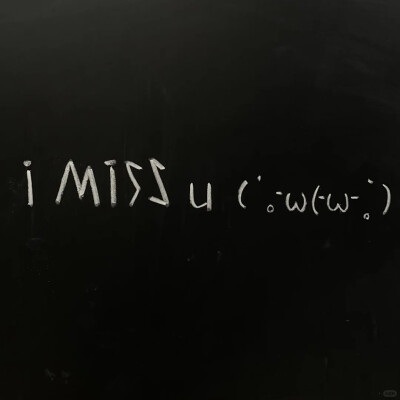 i MISS u (˙｡-ω(-ω-｡˙)